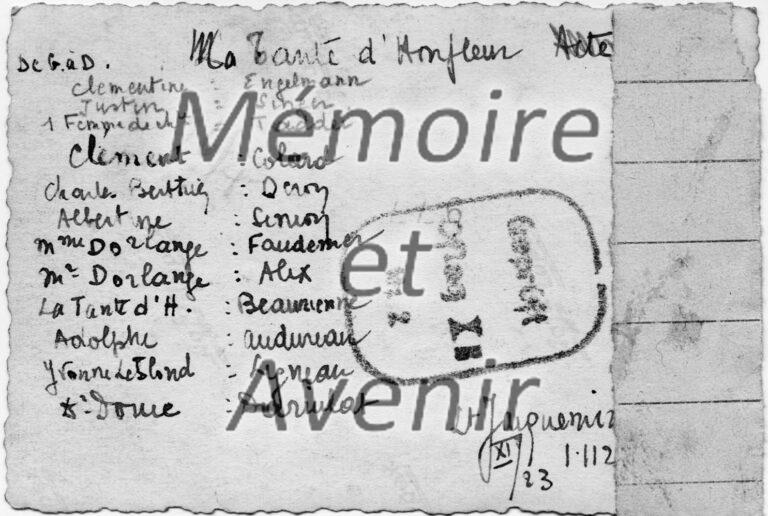 Ma Tante d'Honfleur Acte
De G. à D.
Clementine : Engelmann
Justin :
1 Femme de :
Clement : Colard
Charles Berthier : Deroy
Albertine : Simon
Mme Dorlange : Faudemer
Mr Dorlange : Alix
La Tante d'H. : Beauvienne
Adolphe : audureau
Yvonne LeBlond :
Dr Douce :
Mémoire
et
Avenir
Geprüft
Stalag XI
XI
23 1.112